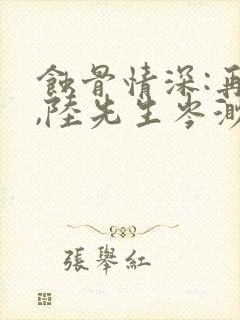 蝕骨情深:再
,陸先生岑渺
張舉紅